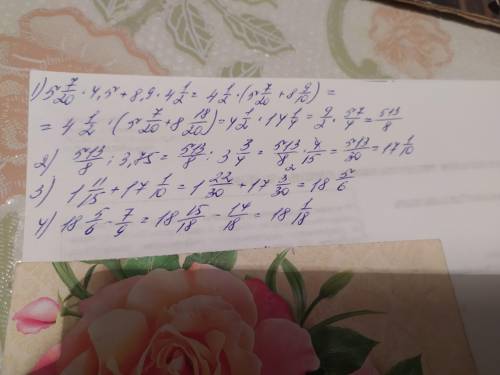 1) 5 7/20 · 4,5 + 8,9 · 4 1/2 = 4 1/2 · (5 7/20 + 8 9/10) =
= 4 1/2 · (5 7/20 + 8 18/20) = 4 1/2 · 14 1/4 = 9/2 · 57/4 = 513/8
2) 513/8 : 3,75 = 513/8 : 3 3/4 = 513/8 · 4/15 = 513/30 = 17 1/10
2
3) 1 11/15 + 17 1/10 = 1 22/30 + 17 3/30 = 18 5/6
4) 18 5/6 - 7/9 = 18 15/18 - 14/18 = 18 1/18